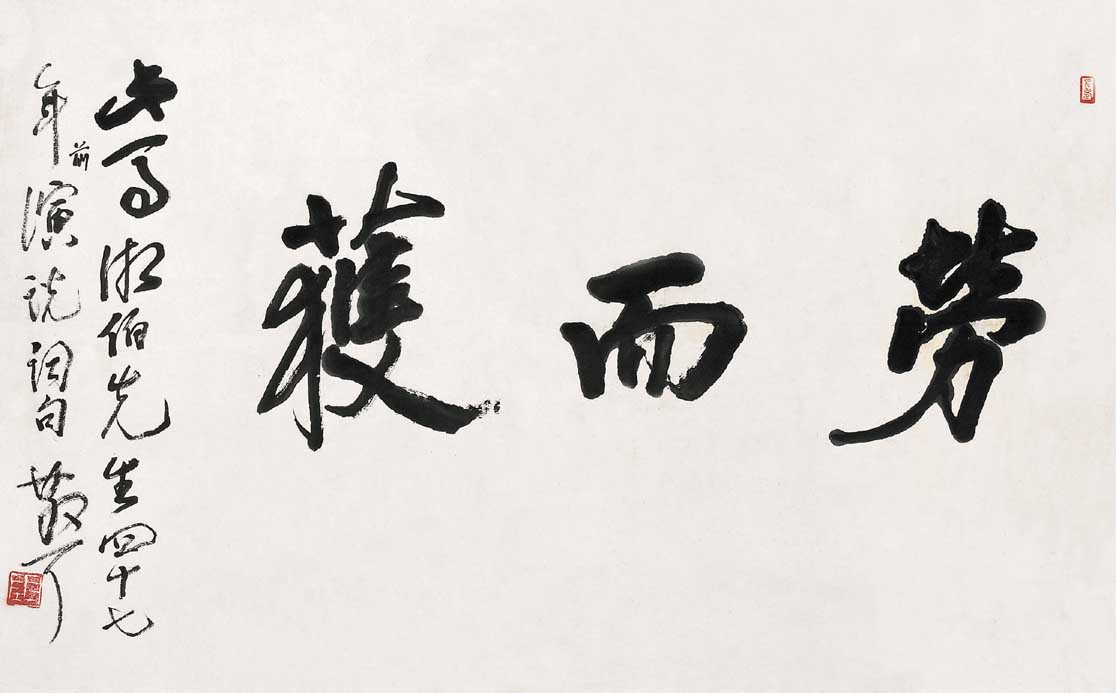 勞而獲
此寫湘伯先生四十七
年前演説詞句 散耳